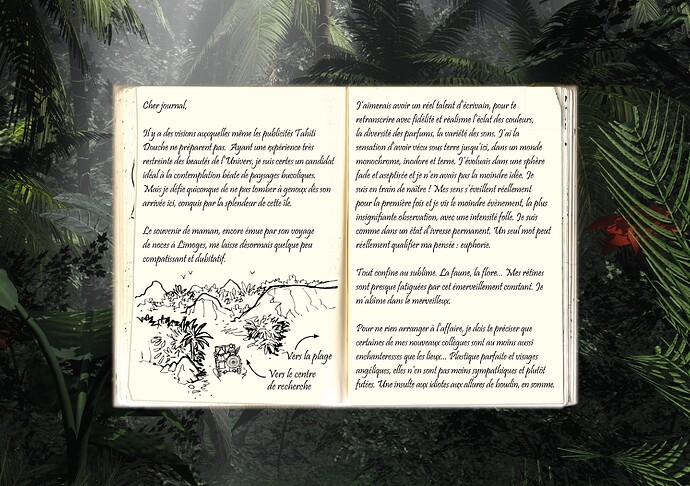 Cher journal,
Il y a des visions auxquelles même les publicités Tahiti
Douche ne préparent pas. Ayant une expérience très
restreinte des beautés de l'Univers, je suis certes un candidat
idéal à la contemplation béate de paysages bucoliques.
Mais je défie quiconque de ne pas tomber à genoux dès son
arrivée ici, conquis par la splendeur de cette île.
Le souvenir de maman, encore émue par son voyage
de noces à Limoges, me laisse désormais quelque peu
compatissant et dubitatif.
Vers la plage
Vers le centre
de recherche
J'aimerais avoir un réel talent d'écrivain, pour te
retranscrire avec fidélité et réalisme l'éclat des couleurs,
la diversité des parfums, la variété des sons. J'ai la
sensation d'avoir vécu sous terre jusqu'ici, dans un monde
monochrome, inodore et terne. J'évoluais dans une sphère
fade et aseptisée et je n'en avais pas la moindre idée. Je
suis en train de naître ! Mes sens s'éveillent réellement
pour la première fois et je vis le moindre évènement, la plus
insignifiante observation, avec une intensité folle. Je suis
comme dans un état d'ivresse permanent. Un seul mot peut
réellement qualifier ma pensée : euphorie.
Tout confine au sublime. La faune, la flore... Mes rétines
sont presque fatiguées par cet émerveillement constant. Je
m'abîme dans le merveilleux.
Pour ne rien arranger à l'affaire, je dois te préciser que
certaines de mes nouveaux collègues sont au moins aussi
enchanteresses que les lieux... Plastique parfaite et visages
angéliques, elles n'en sont pas moins sympathiques et plutôt
futées. Une insulte aux idiotes aux allures de boudin, en somme.